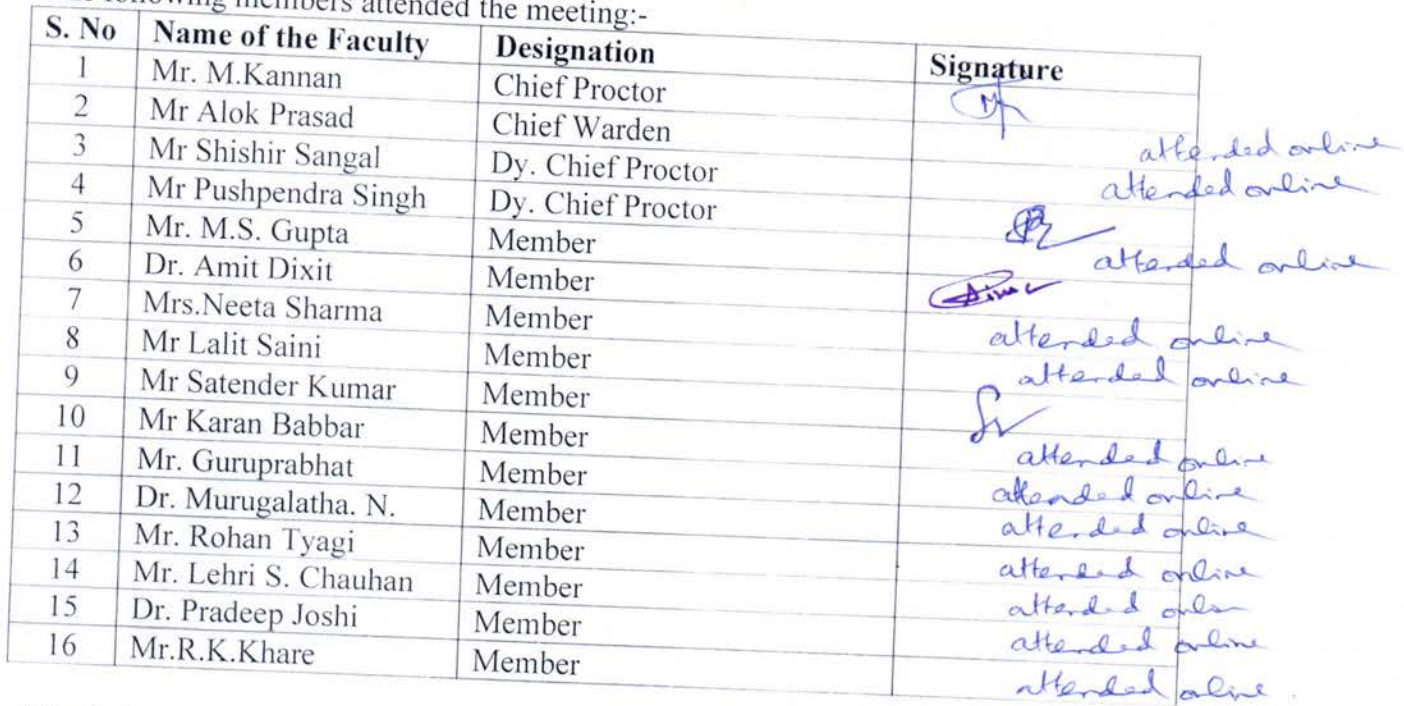 following members attended the meeting:-
S. No Name of the Faculty Designation Signature
1 Mr. M.Kannan Chief Proctor
2 Mr Alok Prasad Chief Warden attended online
3 Mr Shishir Sangal Dy. Chief Proctor attended online
4 Mr Pushpendra Singh Dy. Chief Proctor
5 Mr. M.S. Gupta Member attended online
6 Dr. Amit Dixit Member
7 Mrs.Neeta Sharma Member attended online
8 Mr Lalit Saini Member attended online
9 Mr Satender Kumar Member
10 Mr Karan Babbar Member attended online
11 Mr. Guruprabhat Member attended online
12 Dr. Murugalatha. N. Member attended online
13 Mr. Rohan Tyagi Member attended online
14 Mr. Lehri S. Chauhan Member attended
15 Dr. Pradeep Joshi Member attended online
16 Mr.R.K.Khare Member attended online.